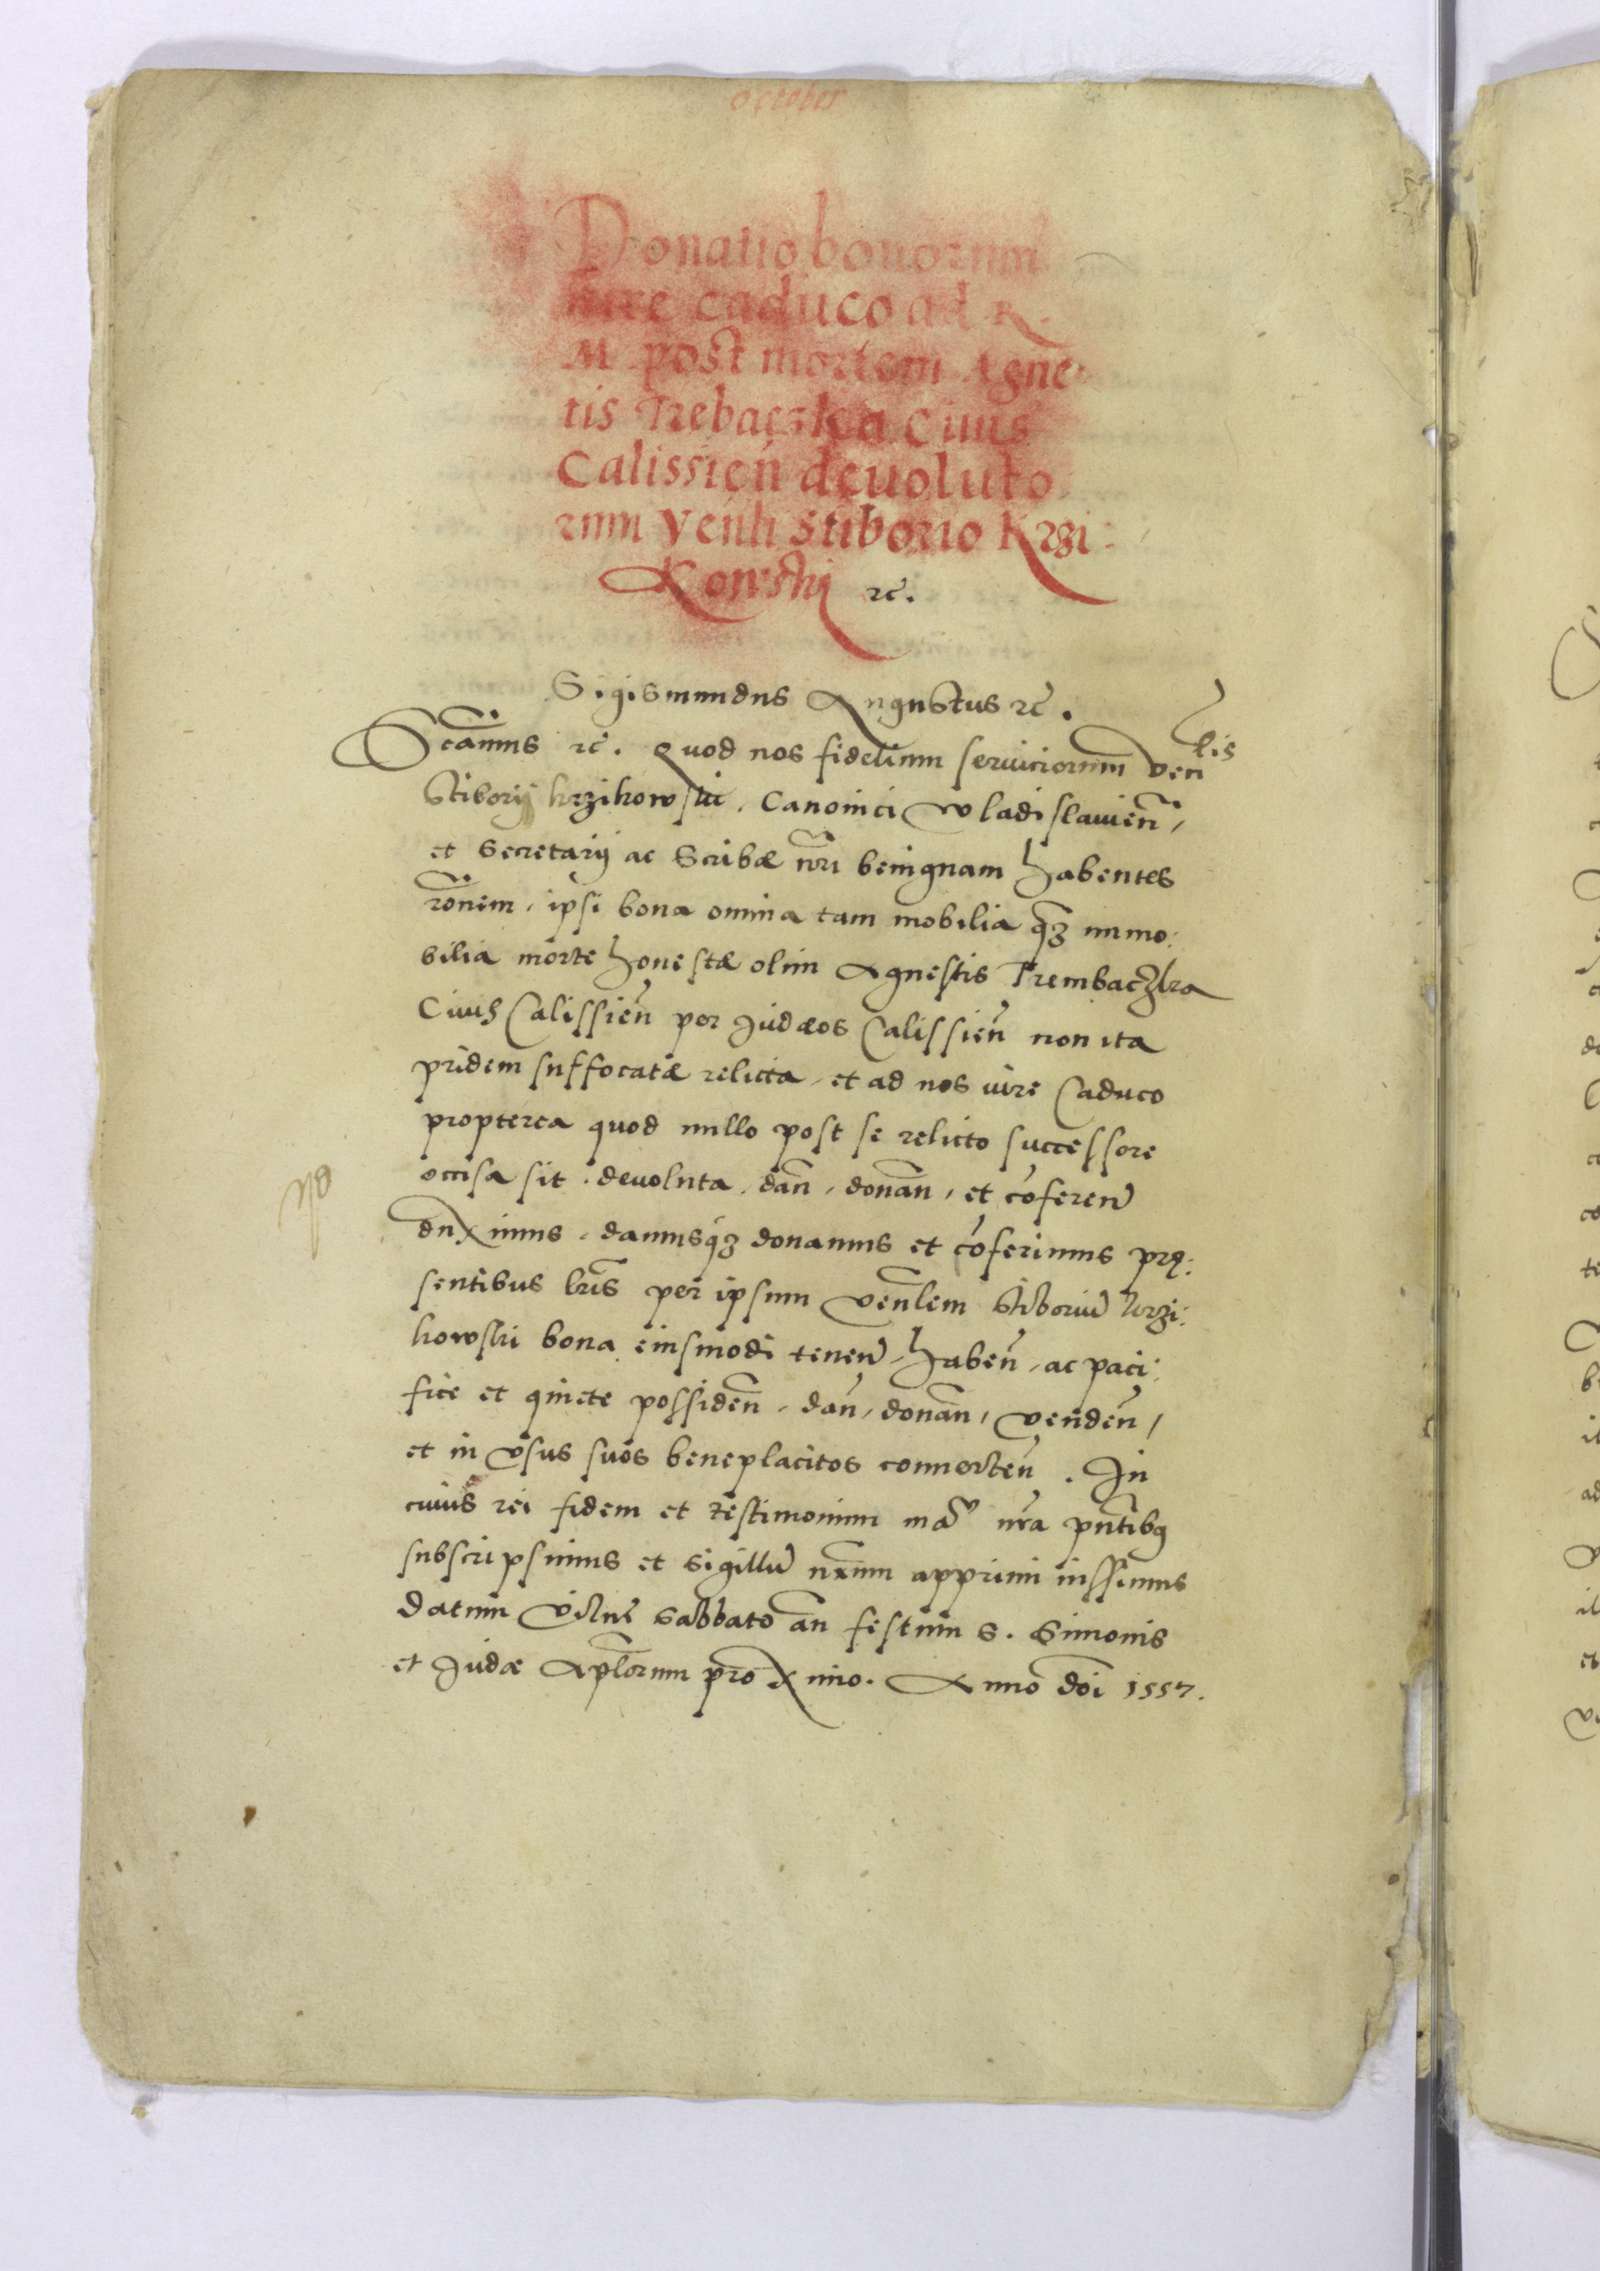 October
Donatio bonorum
iure caduco ad R.
M. post mortem Agne
tis Trebaczka Civis
Calissien̄ devoluto
rum Venli Stiborio Krzi:
kowski etc.
Sigismundus Augustus etc.
Sc̄amus etc. Quod nos fidelium serviciorum venlis
Stiborij Krzikowski, Canonici Wladislavien̄,
et Secretarij ac Scribæ nr̄i benignam habentes
rōnem, ipsi bona omnia tam mobilia q̄ꝫ immo:
bilia morte honestæ olim Agnestis Trembaczka
Civis Calissien̄ per Judæos Calissien̄ non ita
pridem suffocatæ relicta, et ad nos iure Caduco
propterea quod nullo post se relicto successore
occisa sit, devoluta, dan̄, donan̄, et cōferen̄
duximus, damusq̄ꝫ donamus et cōferimus præ:
sentibus lr̄is per ipsum Ven̄lem Stiboriū Krzi:
kowski bona eiusmodi tenen̄, haben̄, ac paci:
fice et quiete possiden̄, dan̄, donan̄, venden̄,
et in usus suos beneplacitos converten̄. In
cuius rei fidem et testimonium manu nr̄a pn̄tibꝫ
subscripsimus et sigillū nr̄um apprimi iussimus
Datum Vilnæ Sabbato an̄ festum S. Simonis
et Judæ Apl̄orum proximo. Anno Dn̄i 1557.